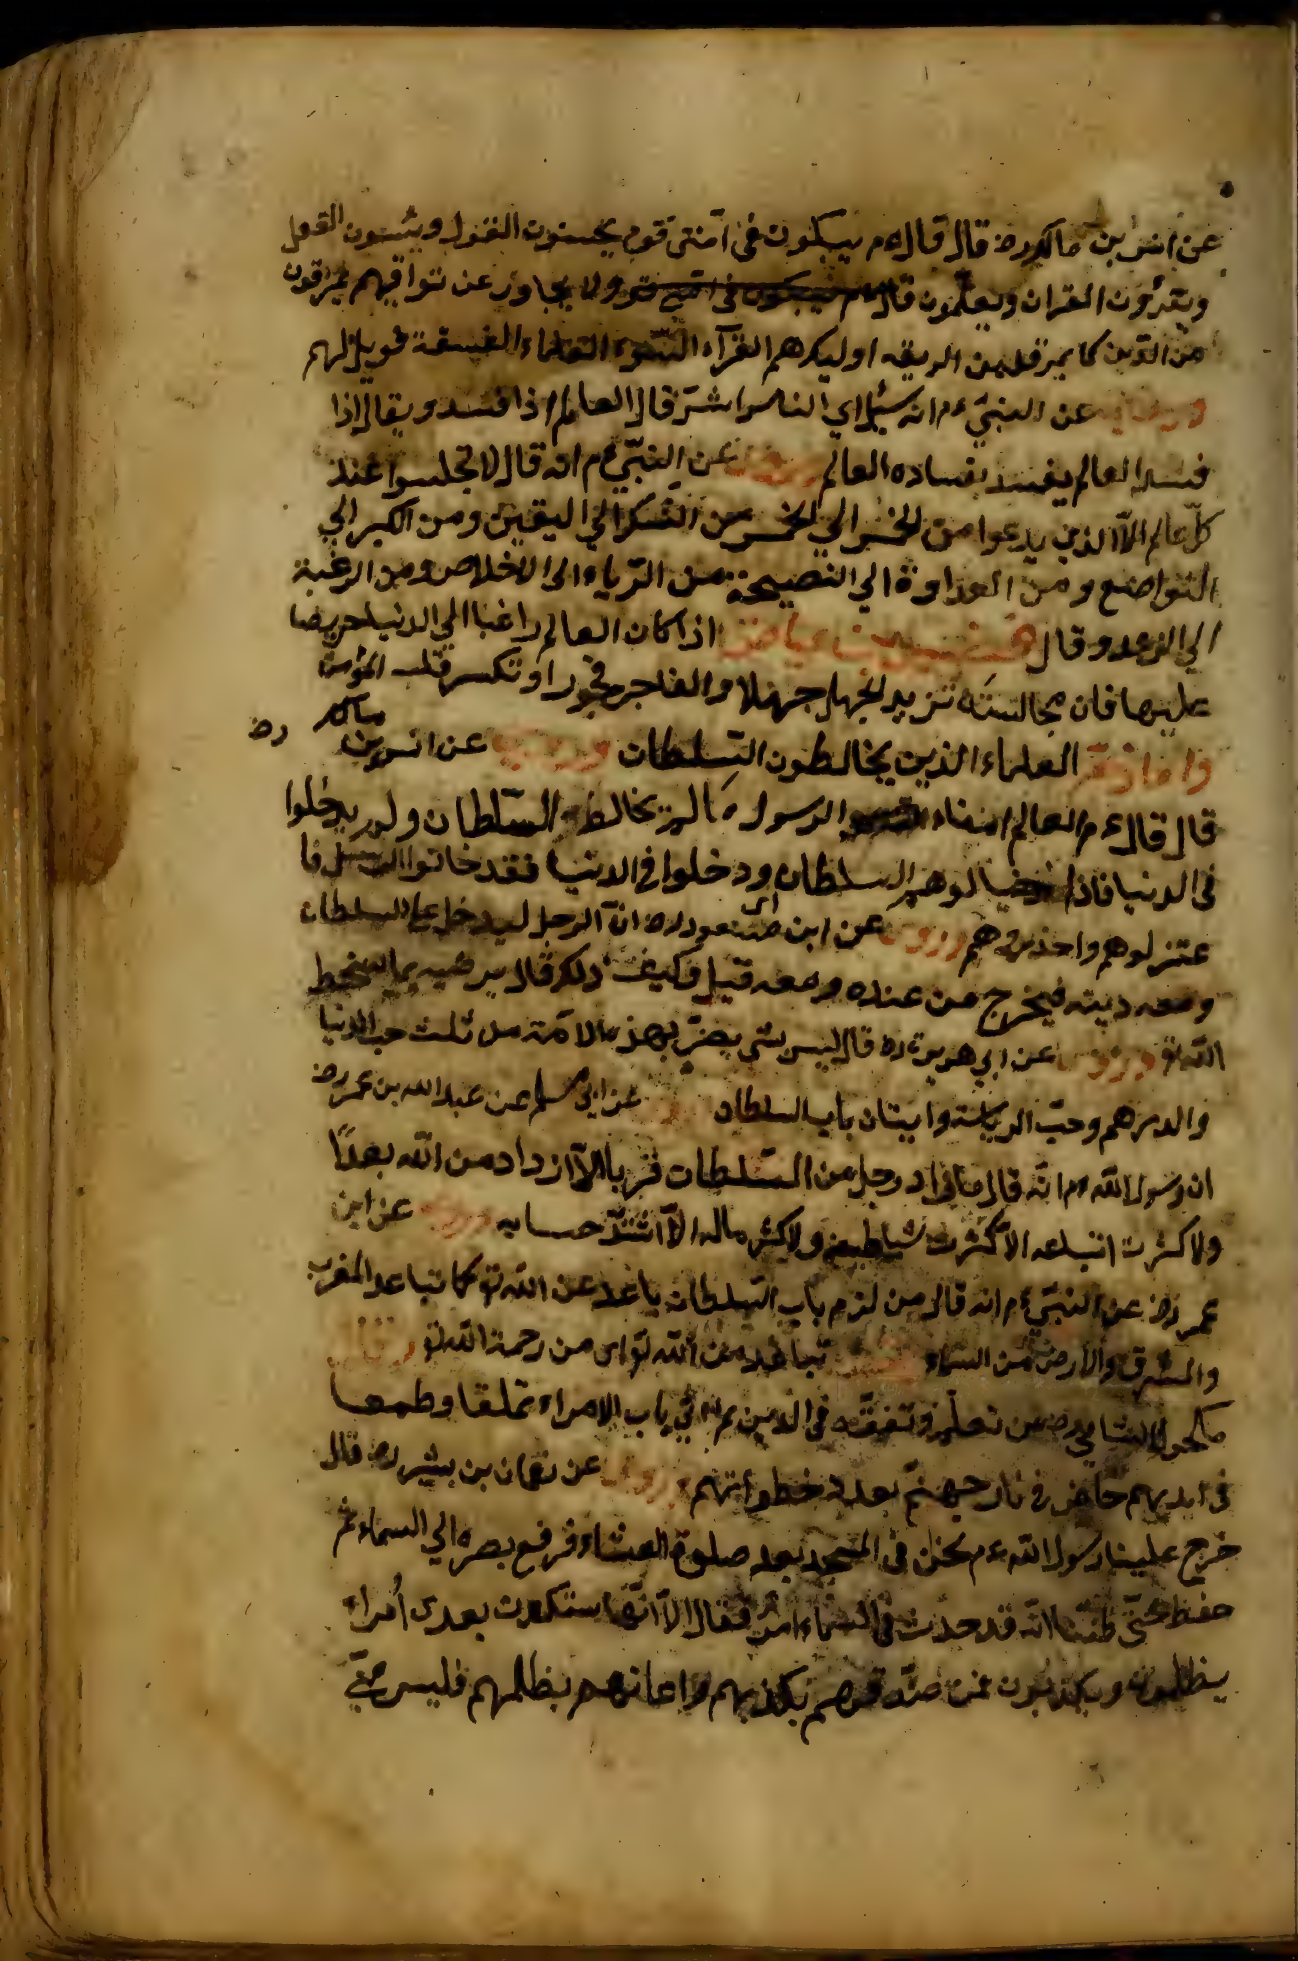 عن انس ابن مالك رض قال قال ءم سيكون في امتى قوم يحسنون القول ويسئون القول
ويقرؤن القران ويعلمون قال ءم سيكون في امتي قوم ولا يجاوز عن تراقيهم يمرقون
من الدين كما يمرق من الرمية اوليك هم القرآء السوء العلماء الفسقة فويل لهم
عن النبي ءم انه سئل اي الناس اشر قال العالم اذا فسد ويقال اذا
فسد العالم يفسد بفساده العالم عن النبي ءم انه قال لا تجلسوا عند
كل عالم الا الذي يدعوا من الخمس الي الخمس من الشك الي اليقين ومن الكبر الي
التواضع ومن العداوة الي النصيحة من الرياء الى الاخلاص ومن الرغبة
الي الزهد وقال فضيل بن عياض اذا كان العالم راغبا الي الدنيا حريصا
عليها فان مجالسته تزيد الجهل جهلا والفاجر فجورا وتكسر قلب المؤمن
واما ذم العلماء الذين يخالطون السلطان وروي عن انس بن مالك رض
قال قال ءم العالم امناء الرسول ما لم يخالط السلطان ولم يدخلوا
في الدنيا فاذا خالوهم السلطان ودخلوا في الدنيا فقد خانوا الرسل فا
عتزلوهم واحذروهم وروي عن ابن مسعود رض ان الرجل ليدخل على السلطان
ومعه دينه فيخرج من عنده ومعه قيل وكيف ذلك قال يرضيه بما يسخط
الله تع وروي عن ابي هريرة رض قال ليس شي يضر بهذه الامة من ثلث حب الدنيا
والدرهم وحب الرياسة واتيان باب السلطان عن ابي مسلم عن عبد الله بن عمر رض
ان رسول الله ءم انه قال ما زاد رجل من السلطان قربا الا ازداد من الله بعدا
ولا كثرت اتباعه الا كثرت شياطينه ولا كثر ماله الا اشتد حسابه وروي عن ابن
عمر رض عن النبي ءم انه قال من لزم باب السلطان باعد عن الله تع كما تباعد المغرب
والمشرق والارض من السماء تباعد من الله تع اى من رحمة الله تع وقال
مكحول الشامي رض من تعلم وتفقه في الدين ثم اتي باب الامراء تملقا وطمعا
في ايديهم خاض في نار جهنم بعدد خطواتهم وروي عن نعمان بن بشير رض قال
خرج علينا رسول الله ءم نحن في المسجد بعد صلوة العشاء فرفع بصره الي السماء ثم
حفظ حتى ظننا انه قد حدث في السماء امر فقال الا انها ستكون بعدى أمراء
يظلمون ويكذبون فمن صدقهم بكذبهم واعانهم بظلمهم فليس مني